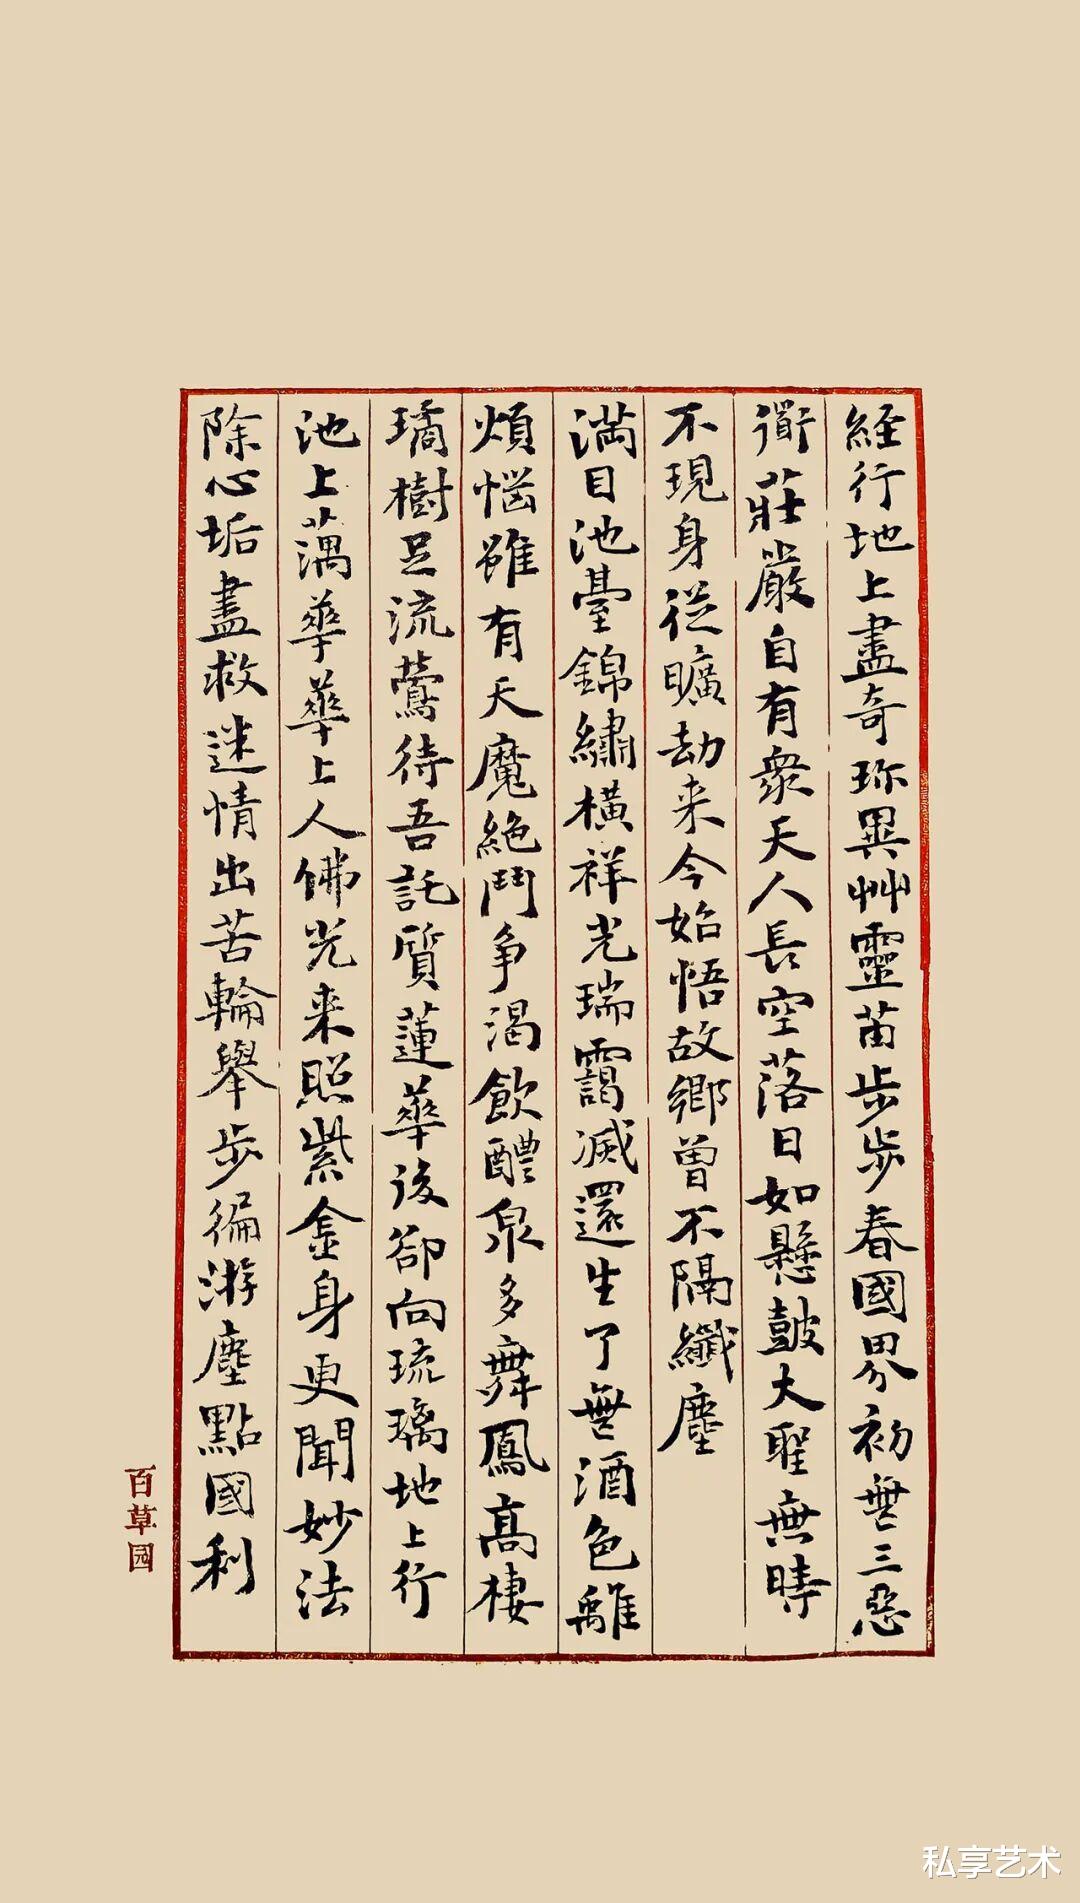 經行地上盡奇珎異艸靈苗步步春國界初無三惡
衜莊嚴自有衆天人長空落日如懸鼓大聖無時
不現身從曠劫来今始悟故鄉曾不隔纖塵
满目池臺錦繡横祥光瑞靄滅還生了無酒色離
煩惱雖有天魔絶鬥爭渴飲醴泉多舞鳳高棲
璚樹足流鶯待吾託質蓮華後卻向琉璃地上行
池上藕華華上人佛光来照紫金身更聞妙法
除心垢盡救迷情出苦輪舉步徧游塵點國利
百草园
私享艺术